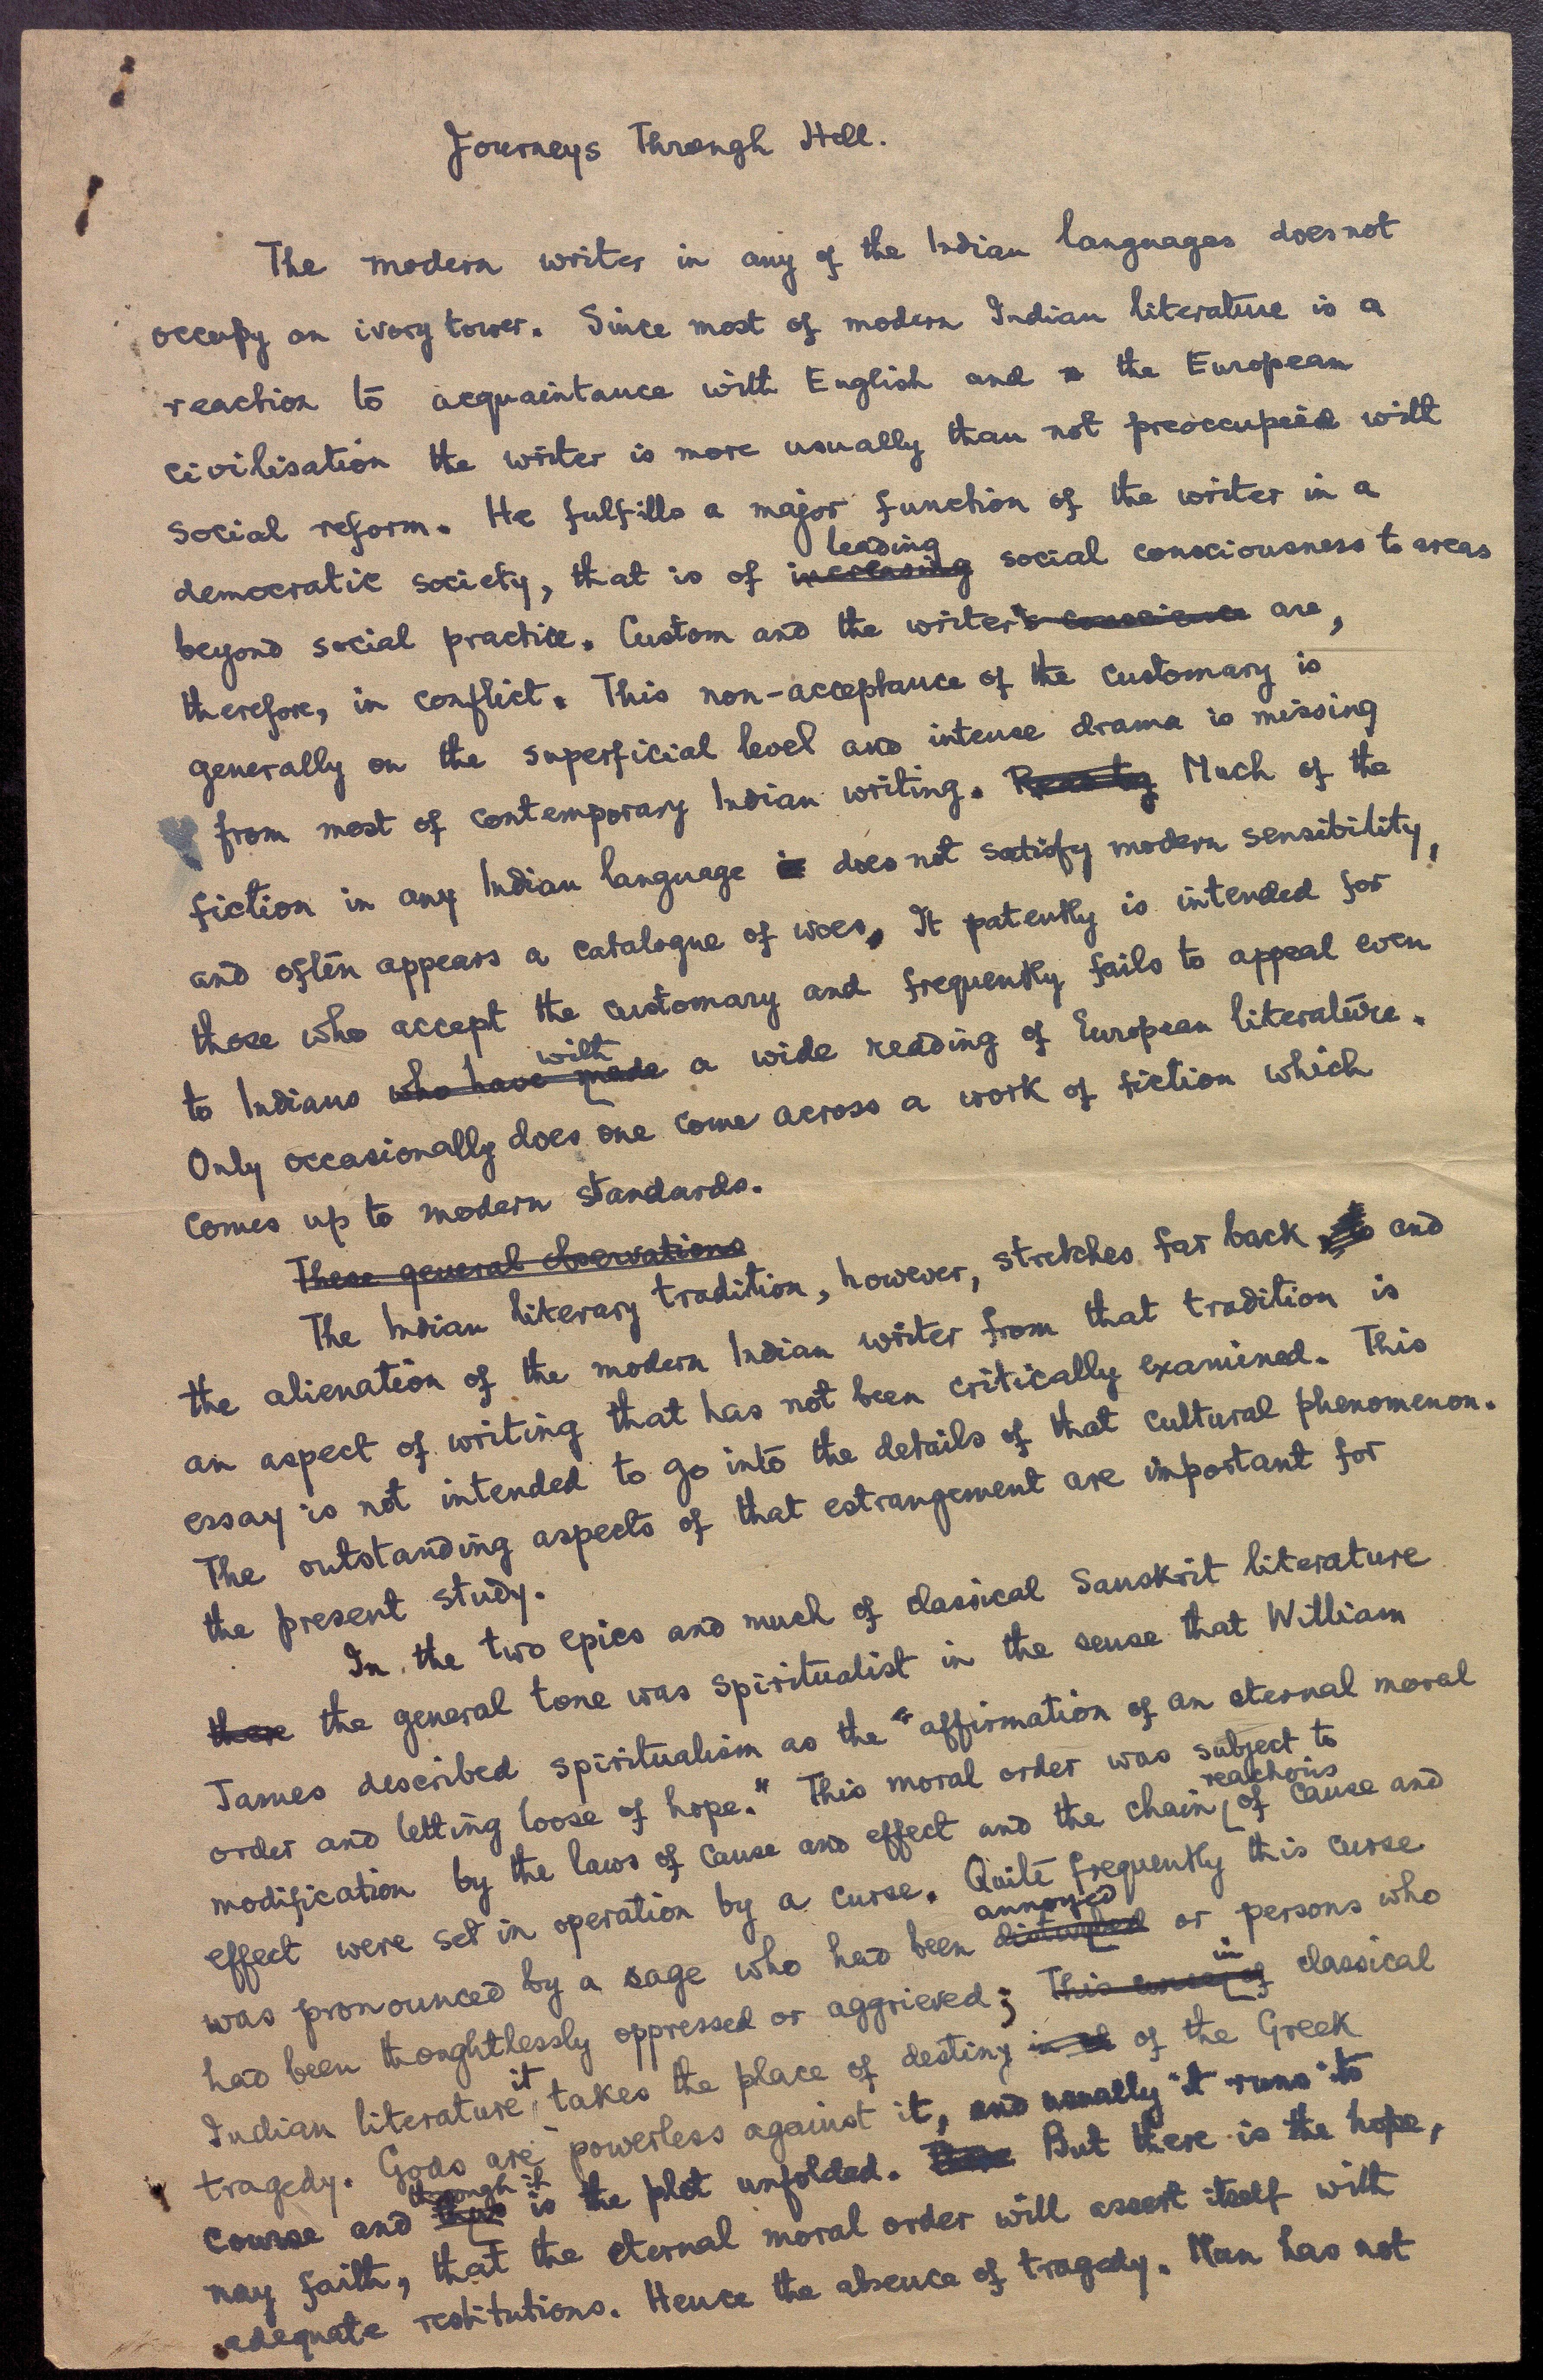 Journeys Through Hell.
The modern writer in any of the Indian languages does not
occupy an ivory tower. Since most of modern Indian literature is a
reaction to acquaintance with English and the European
civilisation the writer is more usually than not preoccupied with
social reform. He fulfills a major function of the writer in a
leading
democratic society, that is of increasing social consciousness to areas
beyond social practice. Custom and the writer's conscience are,
therefore, in conflict. This non-acceptance of the customary is
generally on the superficial level and intense drama is missing
from most of contemporary Indian writing. Much of the
fiction in any Indian language is does not satisfy modern sensibility,
and often appears a catalogue of woes. It patently is intended for
those who accept the customary and frequently fails to appeal even
with
to Indians who have made a wide reading of European literature.
Only occasionally does one come across a work of fiction which
comes up to modern standards.
These general observations
The Indian literary tradition, however, stretches far back and
the alienation of the modern Indian writer from that tradition is
an aspect of writing that has not been critically examined. This
essay is not intended to go into the details of that cultural phenomenon.
The outstanding aspects of that estrangement are important for
the present study.
In the two epics and much of classical Sanskrit literature
there the general tone was spiritualist in the sense that William
James described spiritualism as the "affirmation of an eternal moral
order and letting loose of hope." This moral order was subject to
reactions
modification by the laws of cause and effect and the chain of cause and
effect were set in operation by a curse. Quite frequently this curse
annoyed
was pronounced by a sage who had been disturbed or persons who
in
had been thoughtlessly oppressed or aggrieved; This of classical
it
Indian literature takes the place of destiny in of the Greek
tragedy. Gods are powerless against it, and usually it runs its
through it
course and is the plot unfolded. But there is the hope,
nay faith, that the eternal moral order will assert itself with
adequate restitutions. Hence the absence of tragedy. Man has not